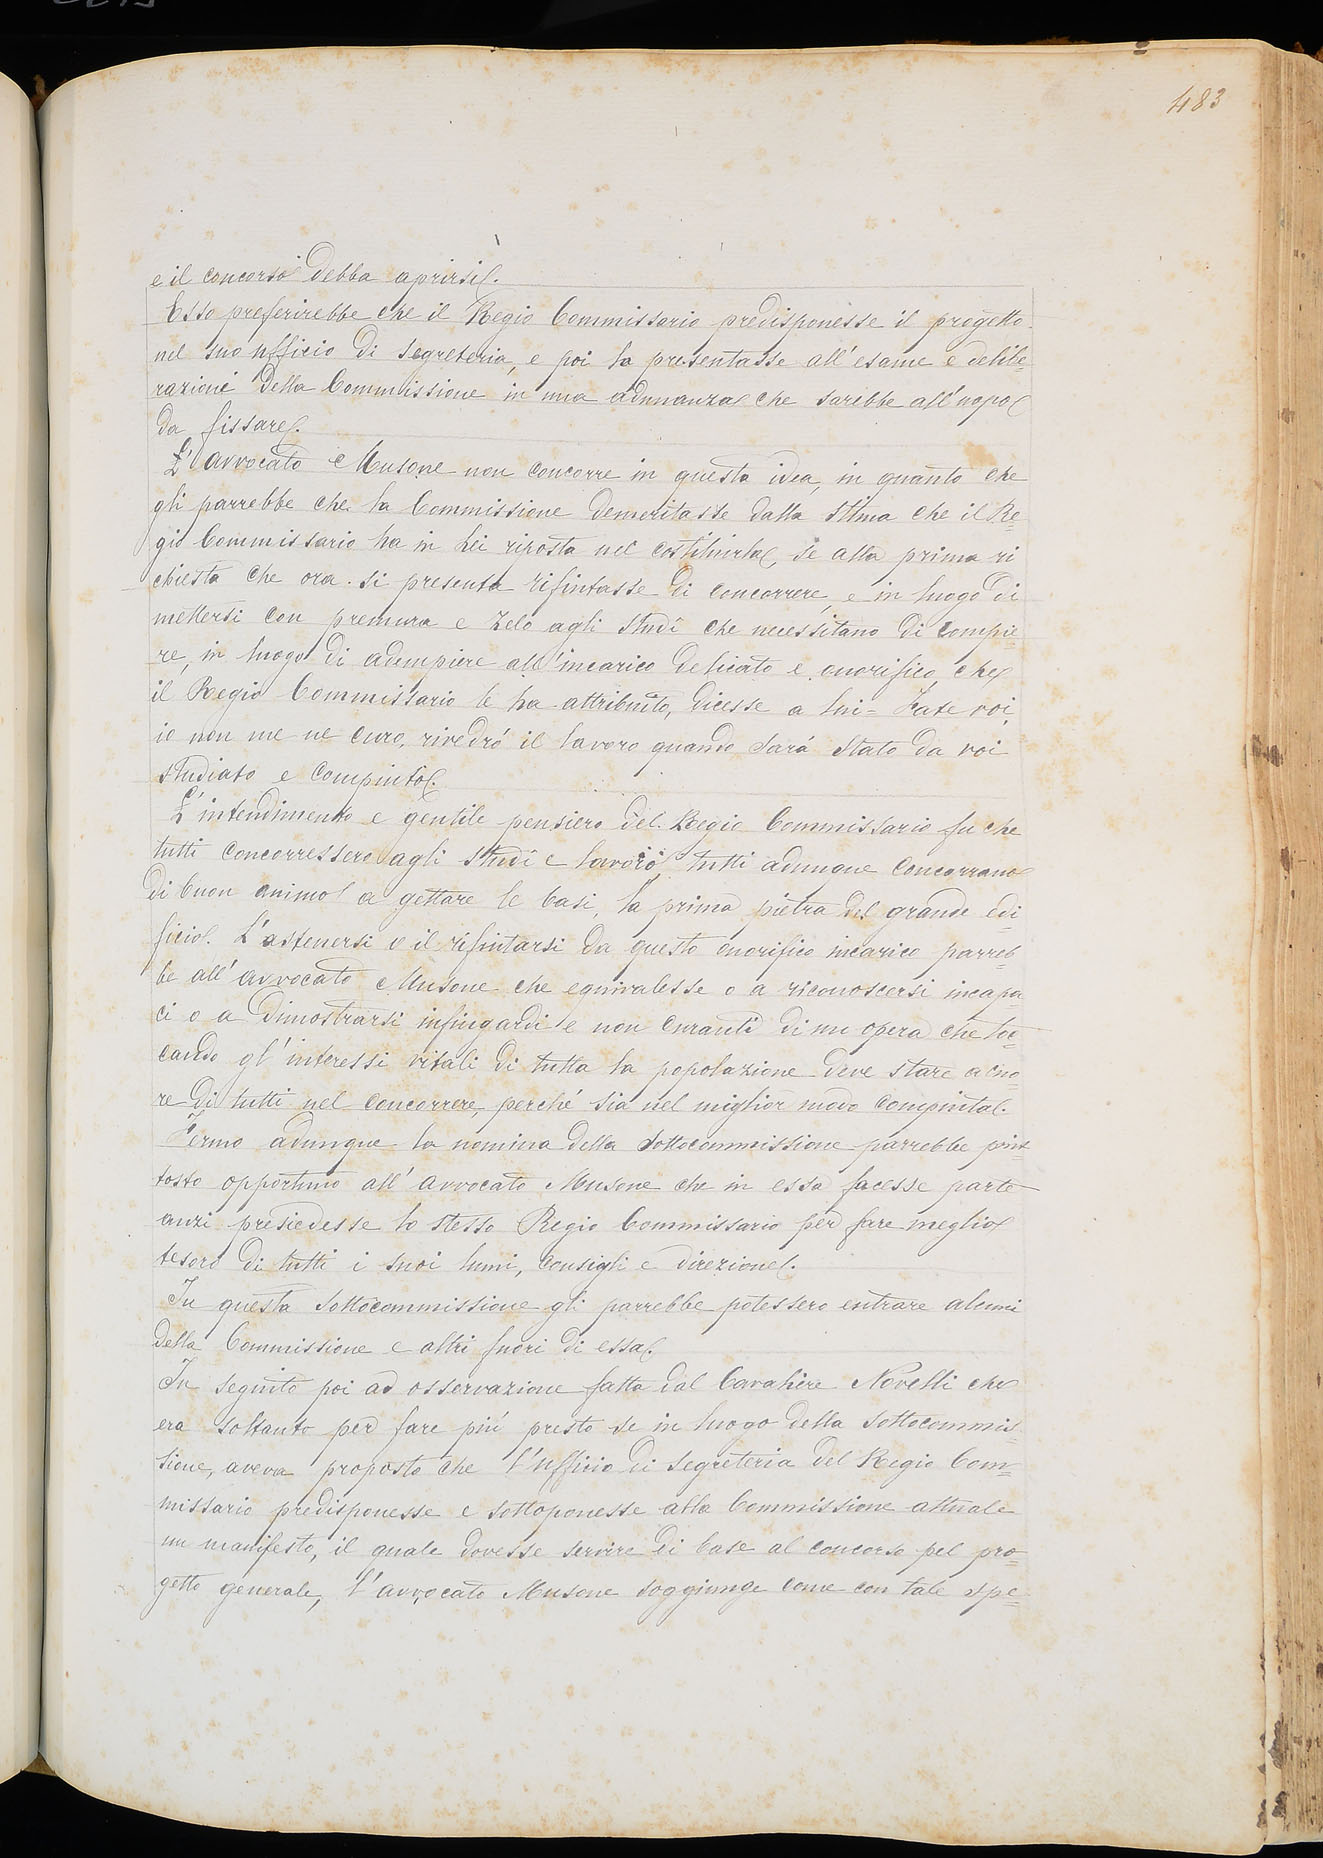 483
e il concorso debba aprirsi.
Esso preferirebbe che il Regio Commissario predisponesse il progetto
nel suo ufficio di segreteria, e poi lo presentasse all'esame e delibe=
razione della Commissione in una adunanza che sarebbe all'uopo
da fissare.
L'avvocato Musone non concorre in questa idea, in quanto che
gli parrebbe che la Commissione demeritasse dalla stima che il Re=
gio Commissario ha in Lei riposta nel costituirla, se alla prima ri
chiesta che ora si presenta rifiutasse di concorrere, e in luogo di
mettersi con premura e zelo agli studî che necessitano di compie=
re, in luogo di adempiere all'incarico delicato e onorifico, che
il Regio Commissario le ha attribuito, dicesse a lui = Fate voi,
io non me ne curo, rivedró il lavoro quando sará stato da voi
studiato e compiuto.
L'intendimento e gentile pensiero del Regio Commissario fu che
tutti concorressero agli studî e lavoro, tutti adunque concorrano
di buon animo a gettare le basi, la prima pietra del grande edi
ficio. L'astenersi o il rifiutarsi da questo onorifico incarico parreb=
be all'avvocato Musone che equivalesse o a riconoscersi incapa
ci o a dimostrarsi infingardi e non curanti di un opera che toc=
cando gl'interessi vitali di tutta la popolazione deve stare a cuo=
re di tutti nel concorrere, perché sia nel miglior modo compiuta.
Fermo adunque la nomina della Sottocommissione parrebbe piut
tosto opportuno all'avvocato Musone che in essa facesse parte
anzi presiedesse lo stesso Regio Commissario per fare meglio
tesoro di tutti i suoi lumi, consigli e direzione.
In questa Sottocommissione gli parrebbe potessero entrare alcuni
della Commissione e altri fuori di essa.
In seguito poi ad osservazione fatta dal Cavaliere Novelli che
era soltanto per fare piú presto se in luogo della Sottocommis=
sione, aveva proposto che l'ufficio di segreteria del Regio Com=
missario predisponesse e sottoponesse alla Commissione attuale
un manifesto, il quale dovesse servire di base al concorso pel pro=
getto generale, l'avvocato Musone soggiunge come con tale spe=